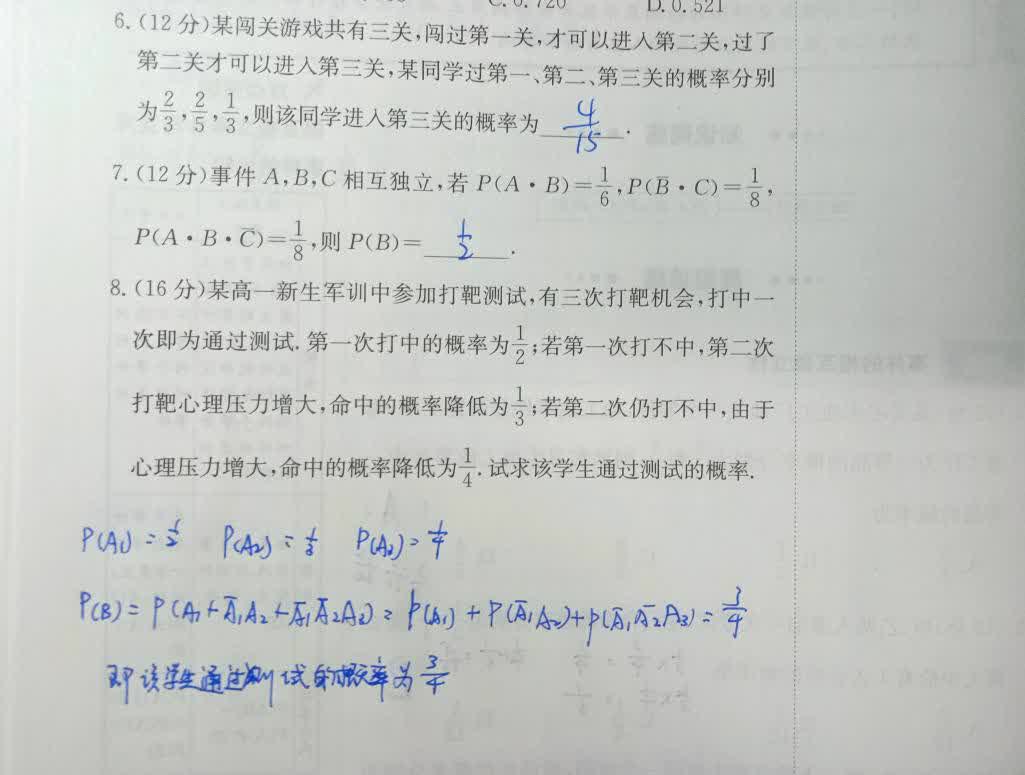 C.0.720 D.0.521
6.(12分)某闯关游戏共有三关,闯过第一关,才可以进入第二关,过了
第二关才可以进入第三关,某同学过第一、第二、第三关的概率分别
为2/3,2/5,1/3,则该同学进入第三关的概率为 4/15 .
7.(12分)事件A,B,C相互独立,若P(A·B)=1/6,P(B̄·C)=1/8,
P(A·B·C̄)=1/8,则P(B)= 1/2 .
8.(16分)某高一新生军训中参加打靶测试,有三次打靶机会,打中一
次即为通过测试.第一次打中的概率为1/2;若第一次打不中,第二次
打靶心理压力增大,命中的概率降低为1/3;若第二次仍打不中,由于
心理压力增大,命中的概率降低为1/4.试求该学生通过测试的概率.
P(A₁)=1/2 P(A₂)=1/3 P(A₃)=1/4
P(B)=P(A₁+Ā₁A₂+Ā₁Ā₂A₃)=P(A₁)+P(Ā₁A₂)+P(Ā₁Ā₂A₃)=3/4
即该学生通过测试的概率为3/4